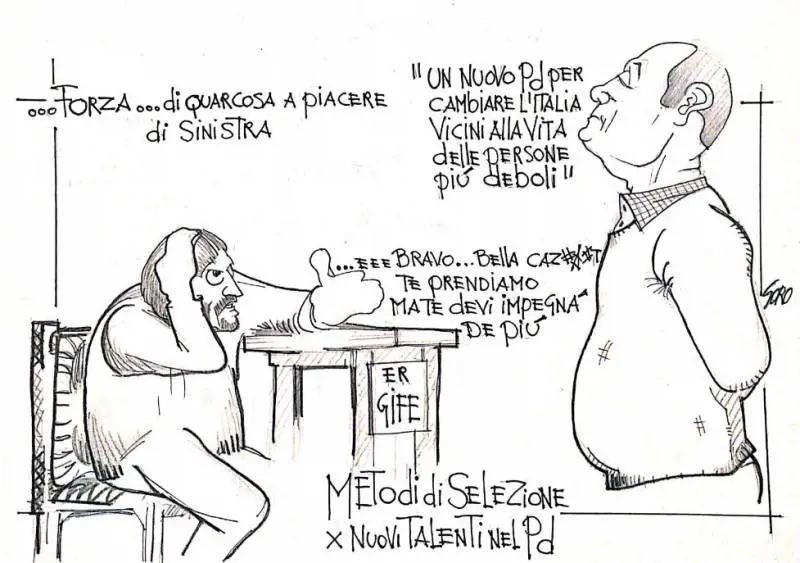 ...FORZA...di QUARCOSA A PIACERE
di SINISTRA
"UN NUOVO Pd PER
CAMBIARE L'ITALIA
VICINI ALLA VITA
delle PERSONE
PIÚ deboli"
...EEE BRAVO...BELLA CAZ##T
TE PRENDIAMO
MA TE DEVI IMPEGNA'
DE PIÚ
SORO
ER
GIFE
METODI di SELEZIONE
x NUOVI TALENTI NEL Pd